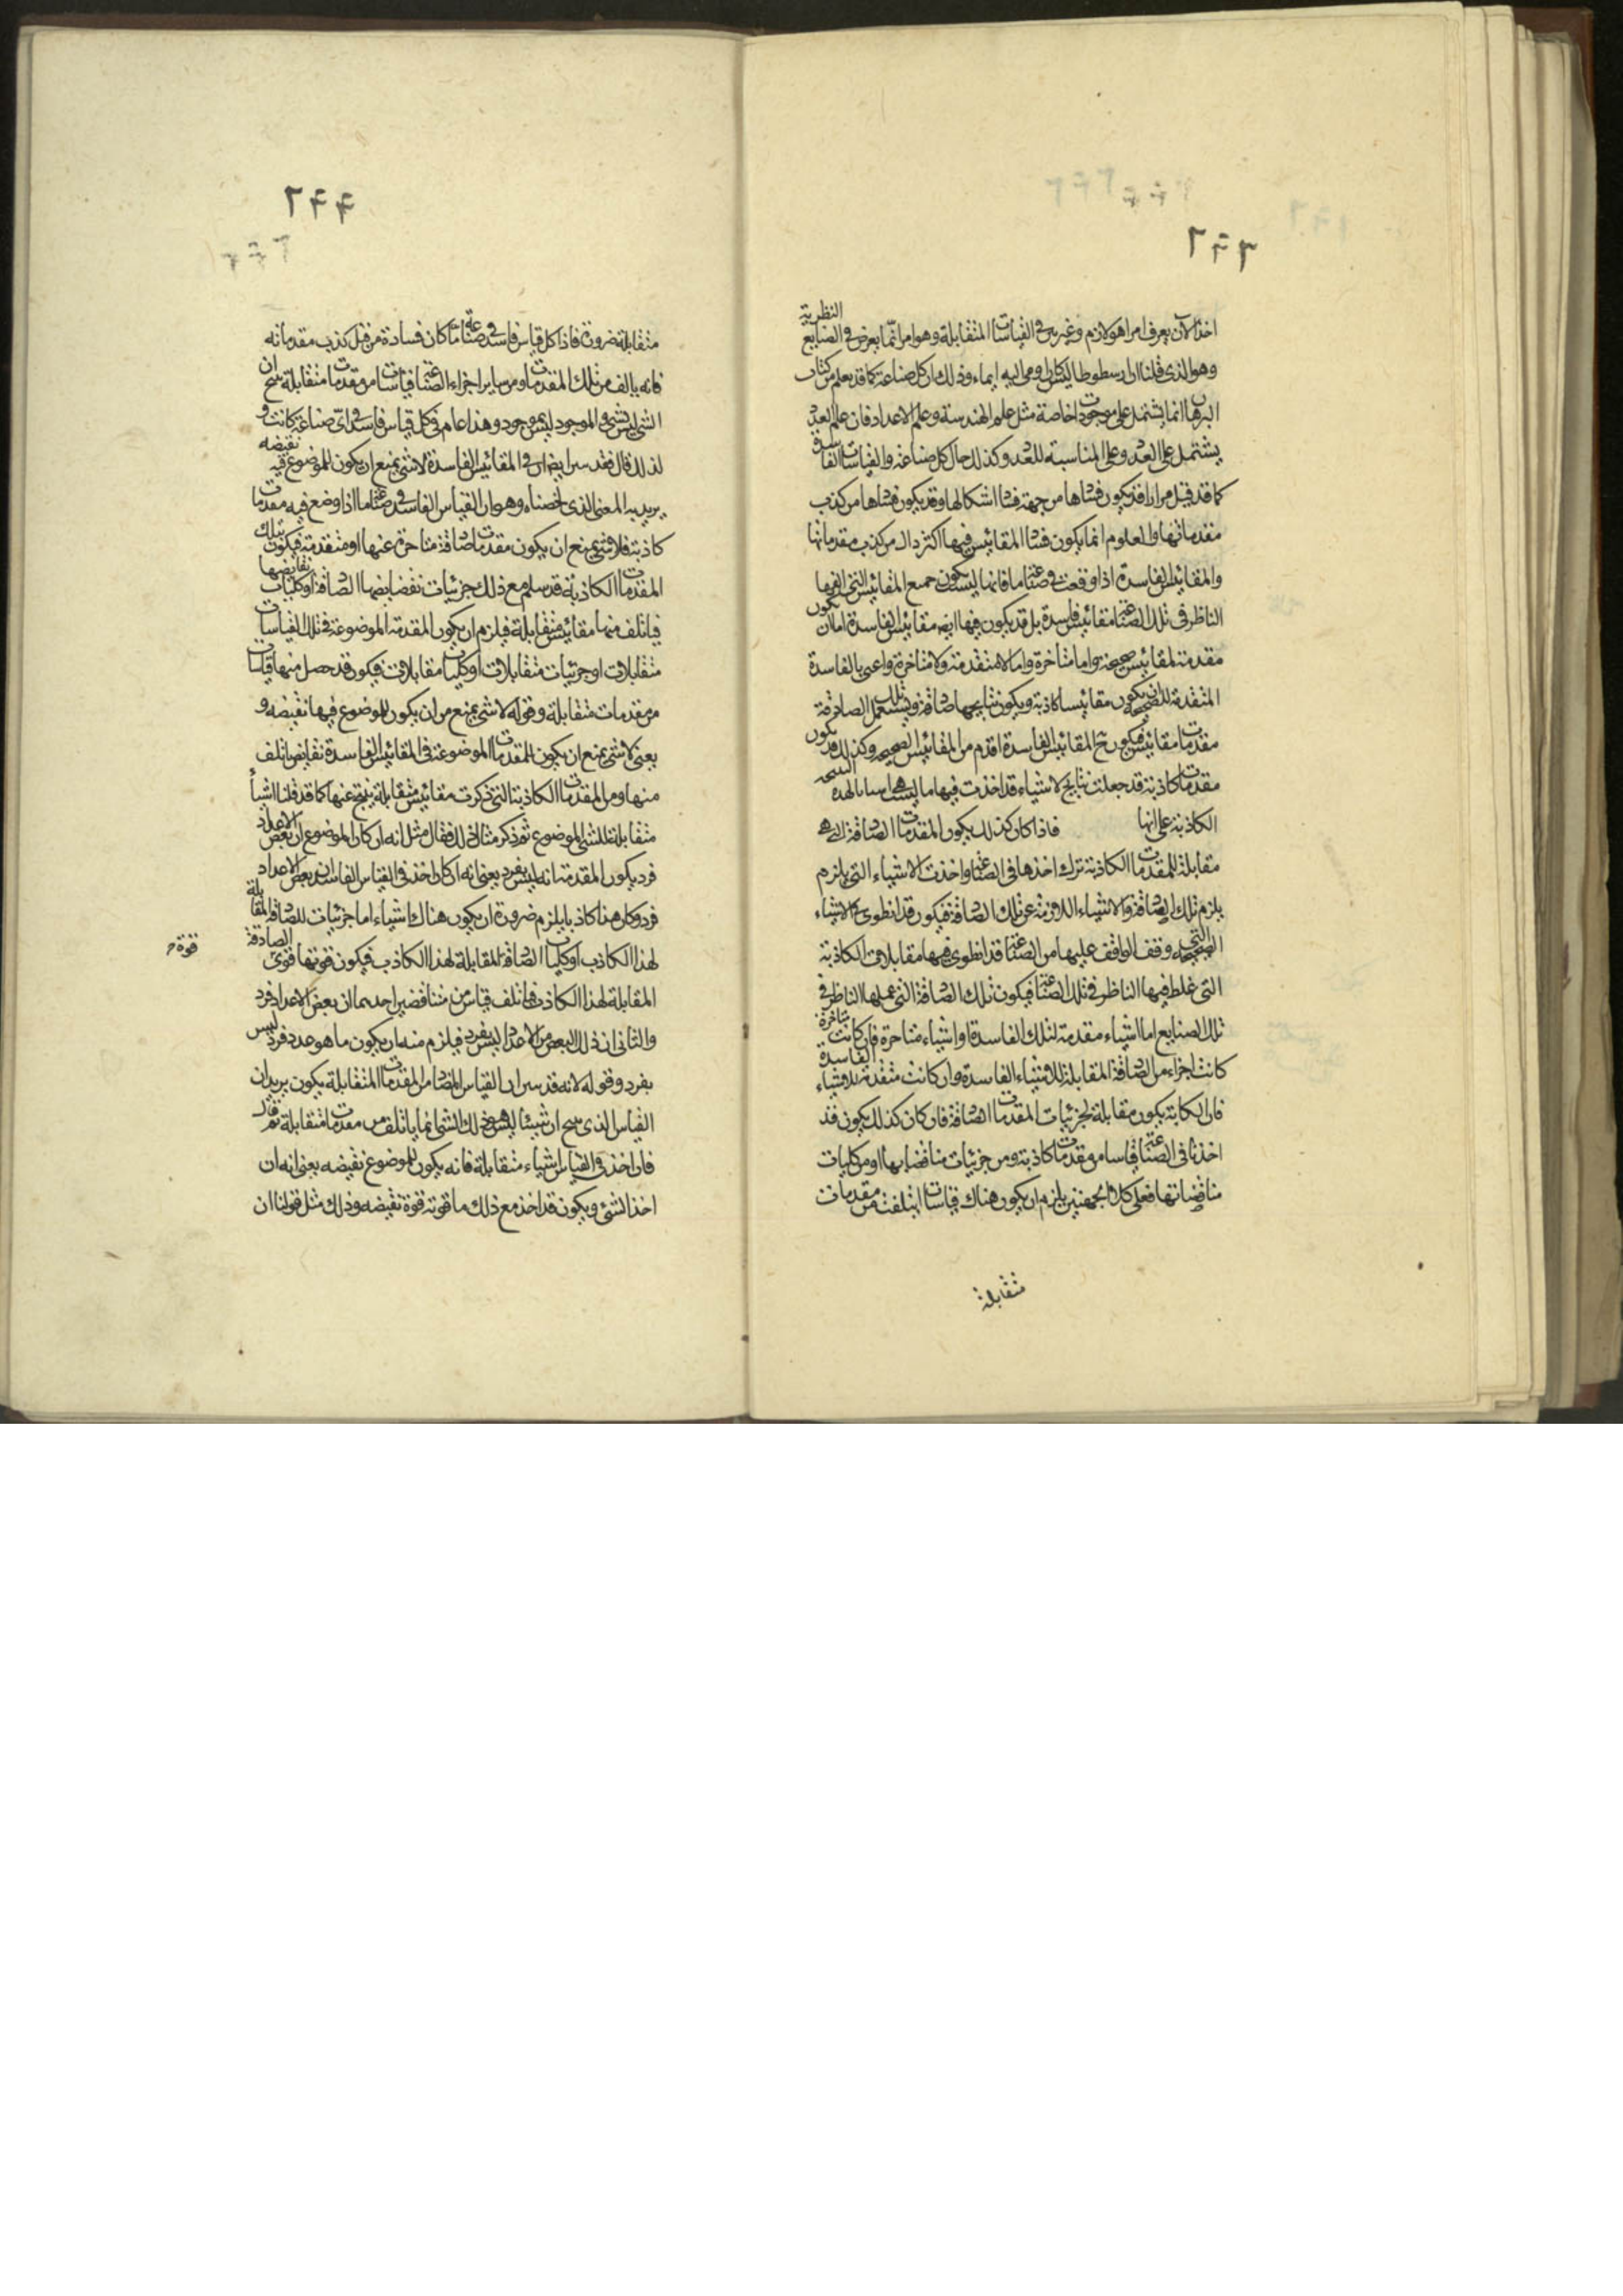 اخذ الآن يعرف امرا هو لازم وغيره في القياسات المتقابلة وهو امر انما يعرض في الصنايع النظرية
وهو الذي قلنا ان ارسطوطاليس كان اومى اليه ايماء وذلك ان كل صناعة كما قد يعلم من كتاب
البرهان انما يشتمل على موجودات خاصة مثل علم الهندسة وعلم الاعداد فان علم العدد
يشتمل على العدد وعلى المناسبة للعدد وكذلك حال كل صناعة والقياسات الفاسدة
كما قد قيل مرارا قد يكون فسادها من جهة فساد اشكالها وقد يكون فسادها من كذب
مقدماتها والعلوم انما يكون فساد المقائيس فيها اكثر ذلك من كذب مقدماتها
والمقائيس الفاسدة اذا وقعت في صناعة ما فانما ليست يكون جميع المقائيس التي الفها
الناظر في تلك الصناعة مقائيس فاسدة بل قد يكون فيها ايضا مقائيس الفاسدة اما ان يكون
مقدمة لمقائيس صحيحة واما متأخرة واما لا متقدمة ولا متأخرة واعني بالفاسدة
المتقدمة للصحيحة ان يكون مقائيسا كاذبة ويكون نتايجها صادقة ويستعمل تلك الصادقة
مقدمات مقائيس فيكون تلك المقائيس الفاسدة اقدم من المقائيس الصحيحة وكذلك قد يكون
مقدمات كاذبة قد جعلت نتايج لاشياء قد اخذت فيها ما ليست هي اسبابا لهذه النتيجة
الكاذبة على انها فاذا كان كذلك يكون المقدمات الصادقة التي هي
مقابلة للمقدمات الكاذبة ترك اخذها في الصناعة واخذت الاشياء التي يلزم
يلزم تلك الصادقة والاشياء اللازمة عن تلك الصادقة فيكون قد انطوى في الاشياء
الصحيحة التي وقف الواقف عليها من الصناعة قد انطوى فيها مقابلات الكاذبة
التي غلط فيها الناظر في تلك الصناعة فيكون تلك الصادقة التي عملها الناظر في
تلك الصنايع اما اشياء مقدمة لتلك الفاسدة او اشياء متاخرة فان كانت متاخرة
كانت اجزاء من الصادقة المقابلة للاشياء الفاسدة وان كانت متقدمة للاشياء الفاسدة
فان الكاذبة يكون مقابلة لجزئيات المقدمات الصادقة فان كان كذلك يكون قد
اخذنا في الصناعة قياسا من مقدمات كاذبة ومن جزئيات مناقضاتها او من كليات
مناقضاتها فعلى كلا الجهتين يلزم ان يكون هناك قياسات ايتلفت من مقدمات
متقابلة
متقابلة ضرورة فاذا كل قياس فاسد في صناعة ما كان فساده من قبل كذب مقدماته
فانه يالف من تلك المقدمات ومن ساير اجزاء الصناعة قياسات من مقدمات متقابلة ينتج ان
الشيء ليس بشيء والموجود ليس بموجود وهذا عام في كل قياس فاسد في اي صناعة كانت و
لذلك قال فقد يتبين ايضا ان في المقائيس الفاسدة لا شيء يمنع ان يكون للموضوع فيه نقيضه
يريد به المعنى الذي لخصناه وهو ان القياس الفاسد في صناعة ما اذا وضع فيه مقدمات
كاذبة فلا شيء يمنع ان يكون مقدمات صادقة متاخرة عنها او متقدمة فيكون تلك
المقدمات الكاذبة قد سلم مع ذلك جزئيات نقضايضها الصادقة او كليات نقايضها
فياتلف منها مقائيس متقابلة فيلزم ان يكون المقدمة الموضوعة في تلك القياسات
متقابلات او جزئيات متقابلات او كليات مقابلات فيكون قد حصل منها قياسات
من مقدمات متقابلة وقوله لا شيء يمنع من ان يكون للموضوع فيها نقيضه و
يعني لا شيء يمنع ان يكون للمقدمات الموضوعة في المقائيس الفاسدة نقايض ياتلف
منها ومن المقدمات الكاذبة التي ذكرت مقائيس متقابلة ينتج عنها كما قد قلنا اشياء
متقابلة للشيء الموضوع ثم ذكر مثال ذلك فقال مثل انه ان كان الموضوع ان بعض الاعداد
فرد يكون المقدمة انه ليس بفرد يعني انه ان كان اخذ في القياس الفاسد ان بعض الاعداد
فرد وكان هذا كاذبا يلزم ضرورة ان يكون هناك اشياء اما جزئيات للصادقة المقابلة
لهذا الكاذب او كليات الصادقة المقابلة لهذا الكاذب فيكون قوتها قوى الصادقة
قوة
المقابلة لهذا الكاذب فياتلف قياس من متناقضين احدهما ان بعض الاعداد فرد
والثاني ان ذلك البعض من الاعداد ليس بفرد فيلزم منه ان يكون ما هو عدد فرد ليس
بفرد وقوله لانه قد يتبين ان القياس المضاد من المقدمات المتقابلة يكون يريد ان
القياس الذي ينتج ان شيئا ليس هو ذلك الشيء انما ياتلف من مقدمات متقابلة ثم قال
فان اخذ في القياس اشياء متقابلة فانه يكون للموضوع نقيضه يعني انه ان
اخذ الشيء ويكون قد اخذ مع ذلك ما قوته قوة نقيضه وذلك مثل قولنا ان